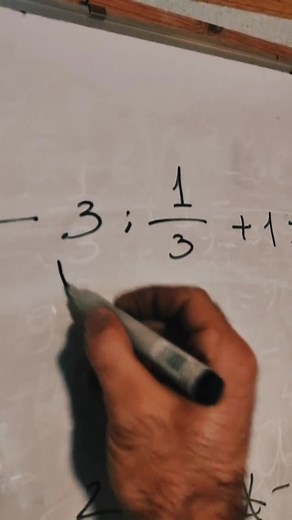 — 3 ; 1/3 + 1 =
2